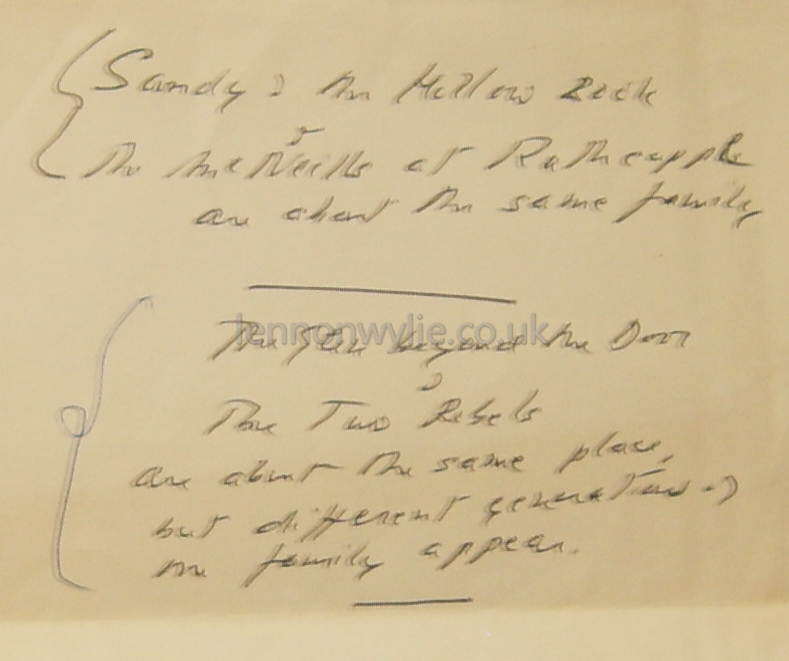 Sandy & the Hollow Book
&
The McNeills at Rathcapple
are about the same family
The Tale beyond the Door
&
The Two Rebels
are about the same place,
but different generations of
one family appear.
lennonwylie.co.uk